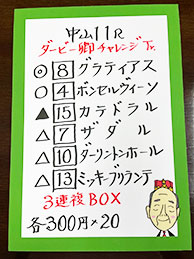 中山11R
ダービー卿チャレンジTr.
◎ 8 グラティアス
○ 4 ボンセルヴィーソ
▲ 15 カテドラル
△ 7 ザダル
△ 10 ダーリントンホール
△ 13 ミッキーブリランテ
3連複BOX
各300円×20